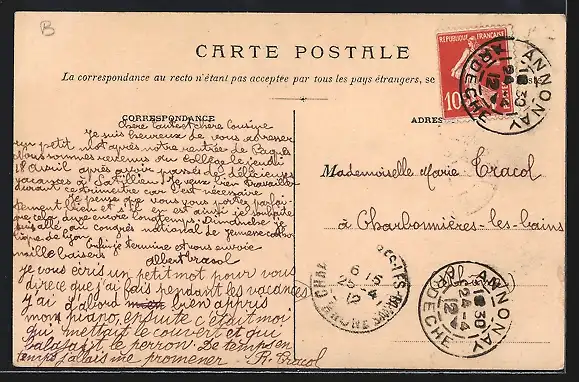 B
CARTE POSTALE
La correspondance au recto n'étant pas acceptée par tous les pays étrangers, se
RÉPUBLIQUE FRANÇAISE
10
POSTES
ANNONAY
18 30
24-4
12
ARDECHE
CORRESPONDANCE
ADRES
Chère tante et chère Cousine
Je suis heureux de vous adresser
un petit mot après notre rentrée de Pâques
Nous sommes revenus au Collège le jeudi
18 avril après avoir passé de délicieuses
vacances à Satillieu. Je veux bien travailler
durant ce trimestre car c'est nécessaire
Je pense que vous vous portez parfai-
tement bien et s'il en est ainsi je souhaite
que cela dure encore longtemps. Dimanche je
suis allé au congrès national de jeunesse catho-
lique de Lyon. Enfin je termine et vous envoie
mille baisers
Albert Tracol
je vous écris un petit mot pour vous
dire ce que j'ai fais pendant les vacances
j'ai d'abord bien appris
mon piano, ensuite c'était moi
qui mettait le couvert et qui
balayait le perron. De temps en
temps j'allais me promener. R. Tracol
Mademoiselle Marie Tracol
à Charbonnières-les-bains
(Rhône)
6 15
25-4
12
ANNONAY
18 30
24-4
12
ARDECHE